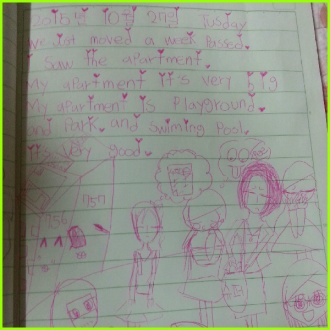 2015년 10월 27일 Tusday
We got moved a week passed.
I saw the apartment.
My apartment it's very big
My apartment is Playground.
and Park. and swiming Pool.
It very good.
757
756